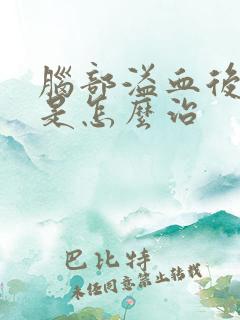 腦部溢血後
是怎麼治
巴比特
未经同意禁止转载